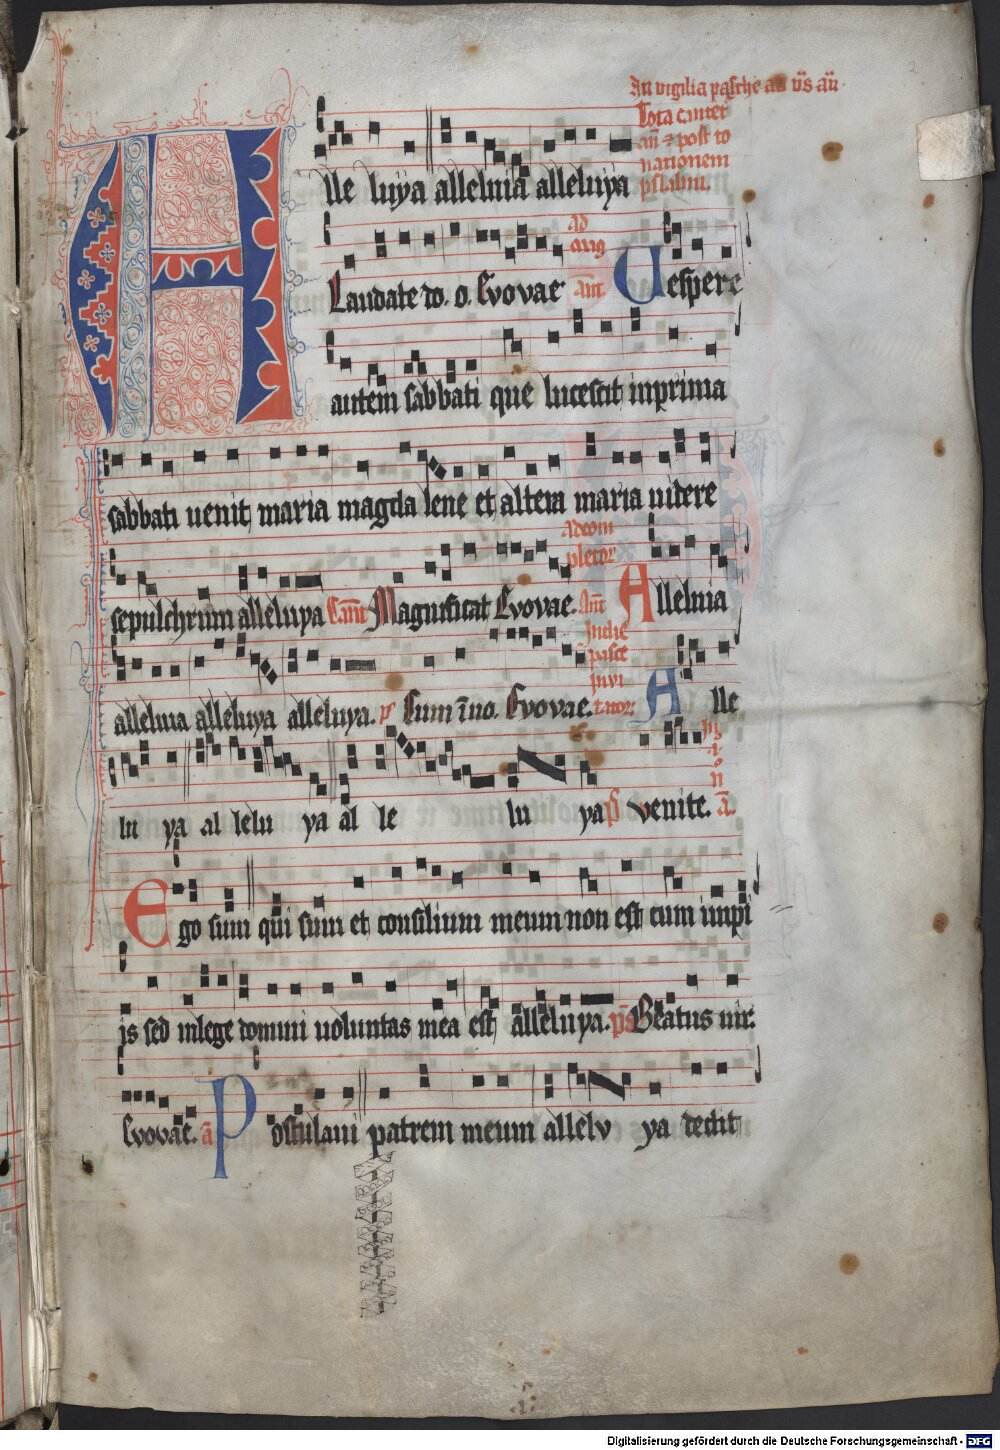 In vigilia pasche ad vs an
Tota cantet
an & post to
nationem
psalmi.
Alle luya alleluia alleluya
Laudate do. o. Evovae
ad
mag
ant.
Vespere
autem sabbati que lucescit inprima
sabbati uenit maria magda lene et altera maria uidere
sepulchrum alleluya Cant Magnificat Evovae.
Ad com
pletor
Ant
Alleluia
alleluia alleluya alleluya. ps Cum ino. Evovae.
Indie
pasce
invi
tator.
Alle
lu ya al lelu ya al le lu ya ps venite.
In
i
o
n
a.
Ego sum qui sum et consilium meum non est cum impi
is sed inlege domini uoluntas mea est alleluya. ps Beatus uir.
Evovae. a Postulaui patrem meum allelv ya dedit
Digitalisierung gefördert durch die Deutsche Forschungsgemeinschaft - DFG